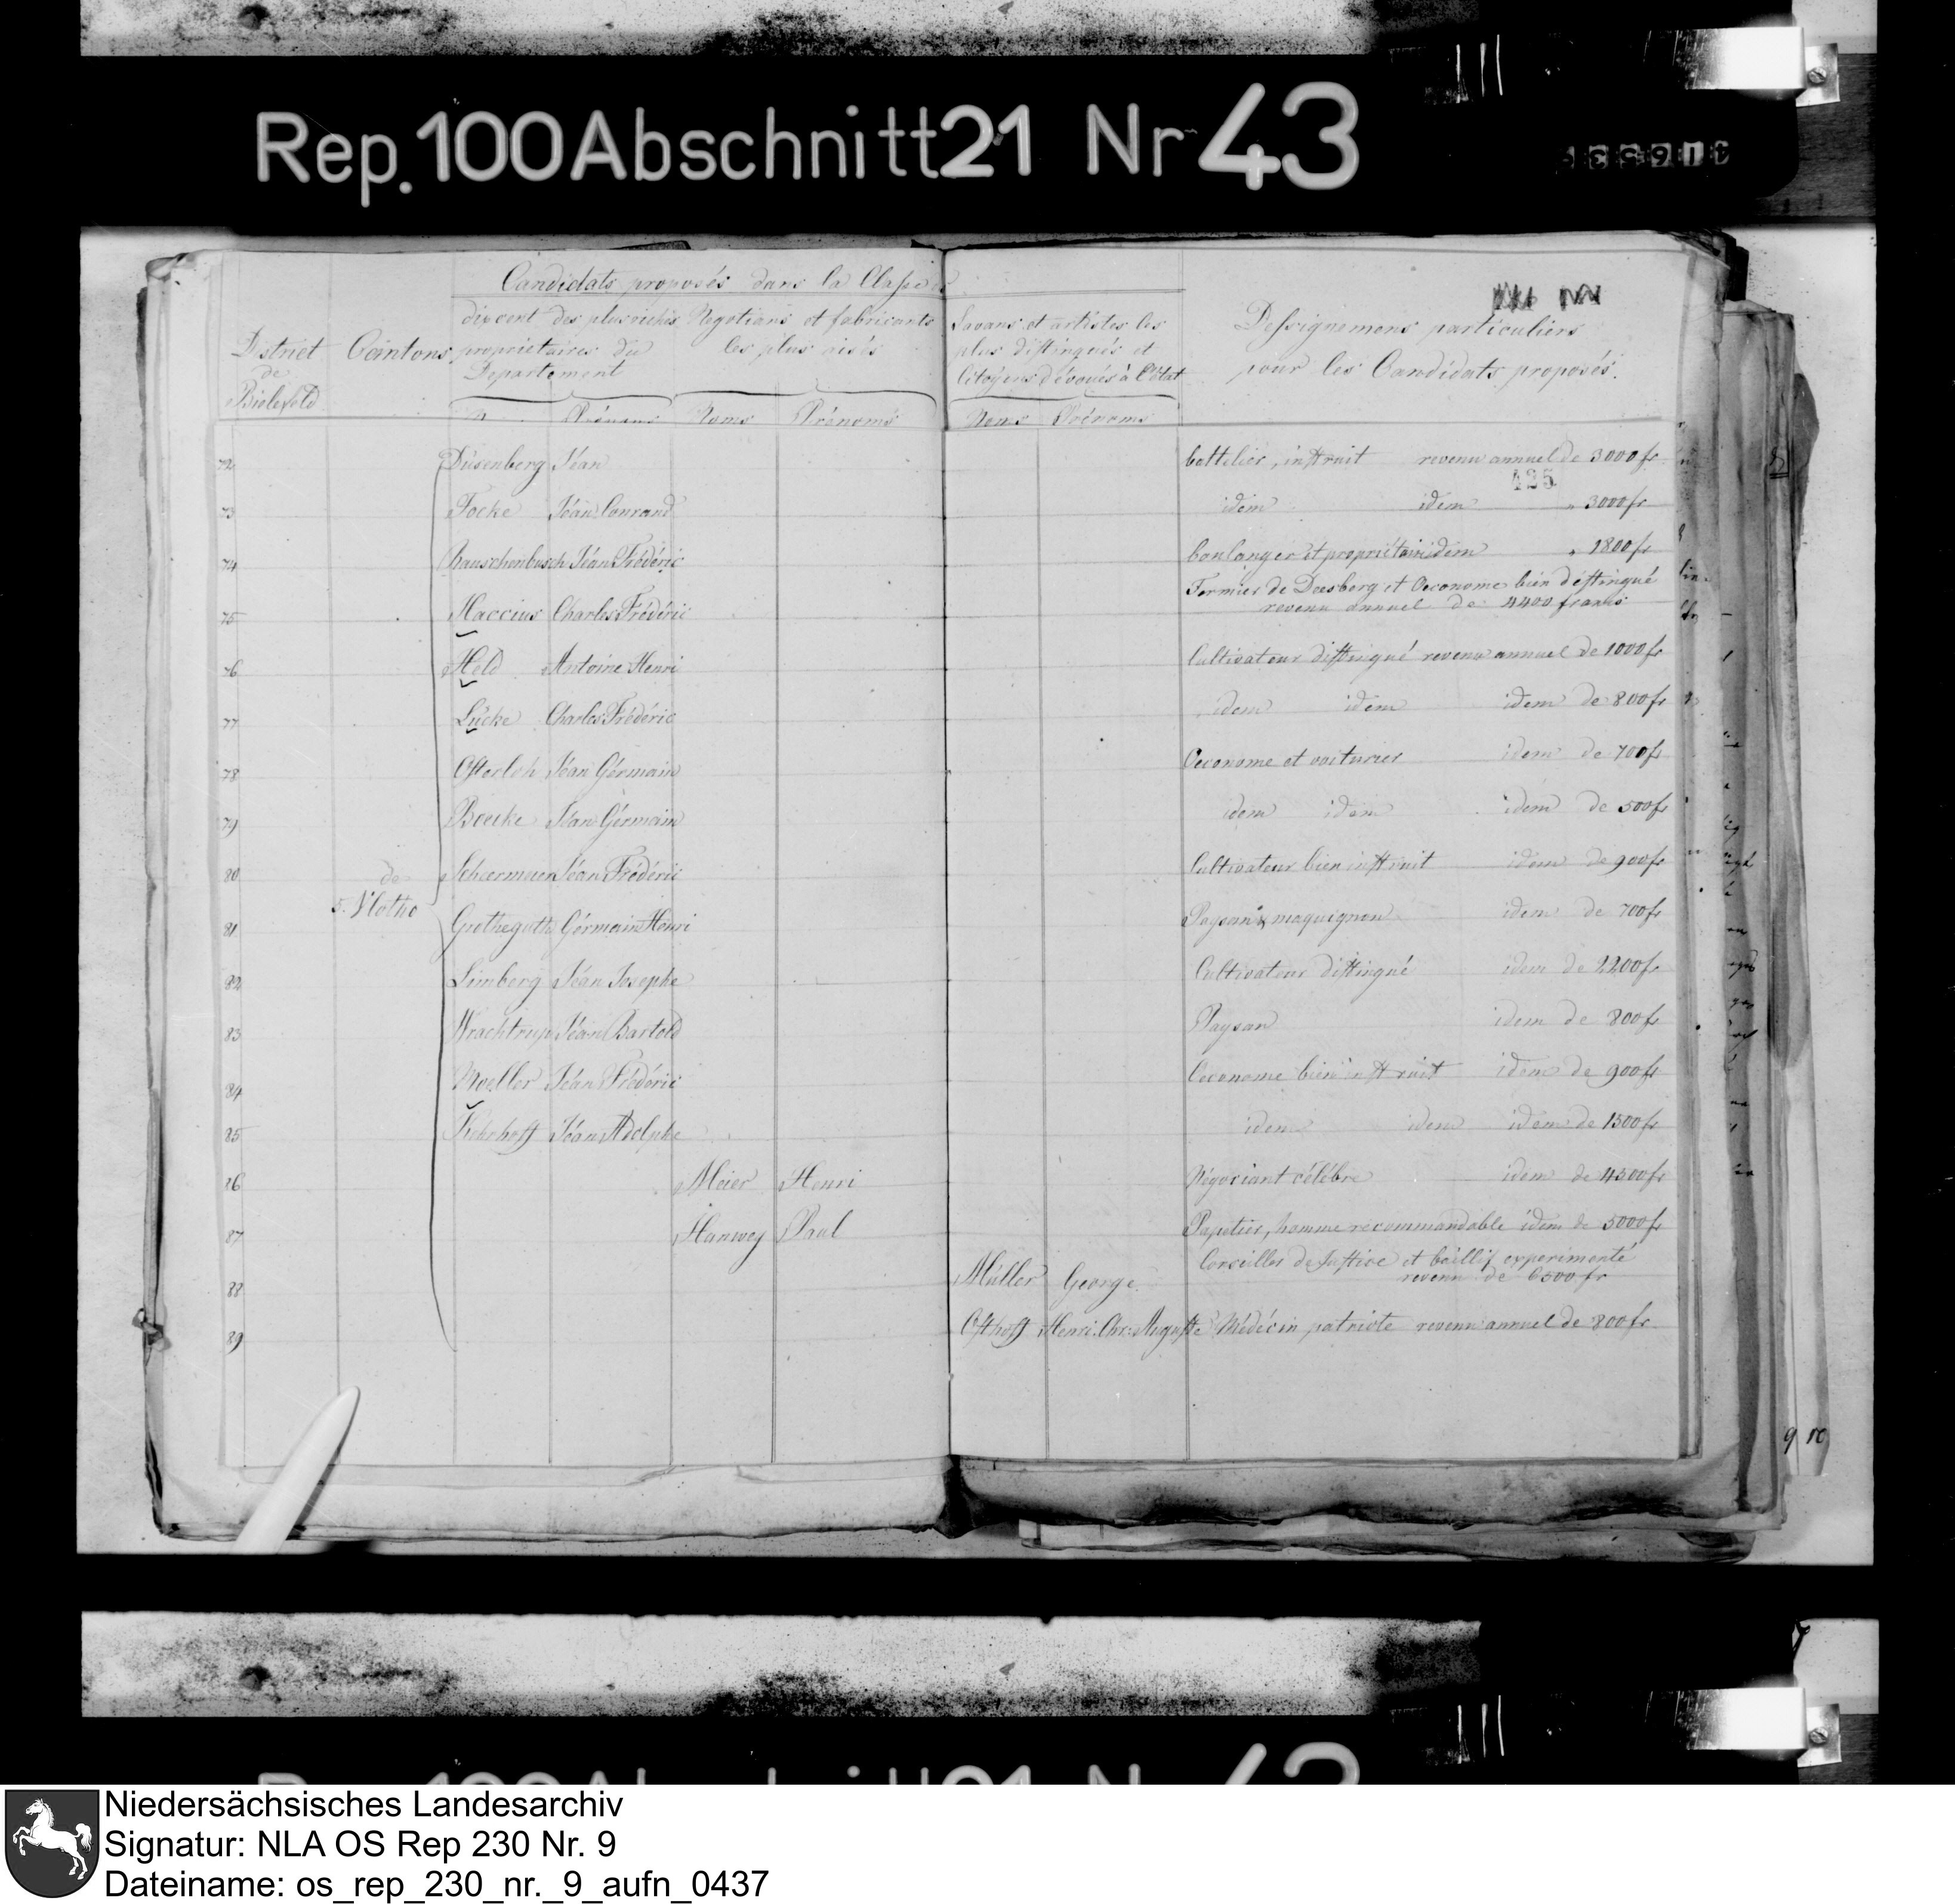 Rep. 100 Abschnitt 21 Nr 43
Candidats proposés dans la Classe
dix cent des plus riches propriétaires du Departement
Negotians et fabricants les plus aisés
Savans et artistes les plus distingués et Citoyens dévoués à l'état
District de Bielefeld
Cantons
particuliers
pour les Candidats proposés.
Prénoms Noms Prénoms Noms Prénoms
72 Düsenberg Jéan battelier, instruit revenu annuel de 3000 fr
425
73 Focke Jéan Conrand idem idem " 3000 fr
74 Rauschenbusch Jéan Frédéric boulanger et propriétaire idem " 1800 fr
75 Haccius Charles Frédéric Fermier de Deesberg et Oeconome bien distingué
revenu annuel de 4400 francs
76 Held Antoine Henri Cultivateur distingué revenu annuel de 1000 fr
77 Lücke Charles Frédéric idem idem idem de 800 fr
78 Osterloh Jéan Gérmain Oeconome et voiturier idem de 700 fr
79 Boecke Jéan Gérmain idem idem idem de 500 fr
80 Jéan Frédéric Cultivateur bien instruit idem de 900 fr
de
5. Vlotho
81 Grotheguth Gérmain Henri Paysan & maquignon idem de 700 fr
82 Limberg Jéan Josephe Cultivateur distingué idem de 2200 fr
83 Wrachtrup Jéan Bartold Paysan idem de 800 fr
84 Moeller Jéan Frédéric Oeconome bien instruit idem de 900 fr
85 Jéan Adolphe idem idem idem de 1500 fr
86 Meier Henri Négociant célébre idem de 4500 fr
87 Hanwey Paul Papetier, homme recommandable idem de 5000 fr
88 Müller George Conseiller de Justice et baillif experimenté
revenu de 6500 fr
89 Osthoff Henri Chr. Auguste Médécin patriote revenu annuel de 800 fr
Niedersächsisches Landesarchiv
Signatur: NLA OS Rep 230 Nr. 9
Dateiname: os_rep_230_nr._9_aufn_0437